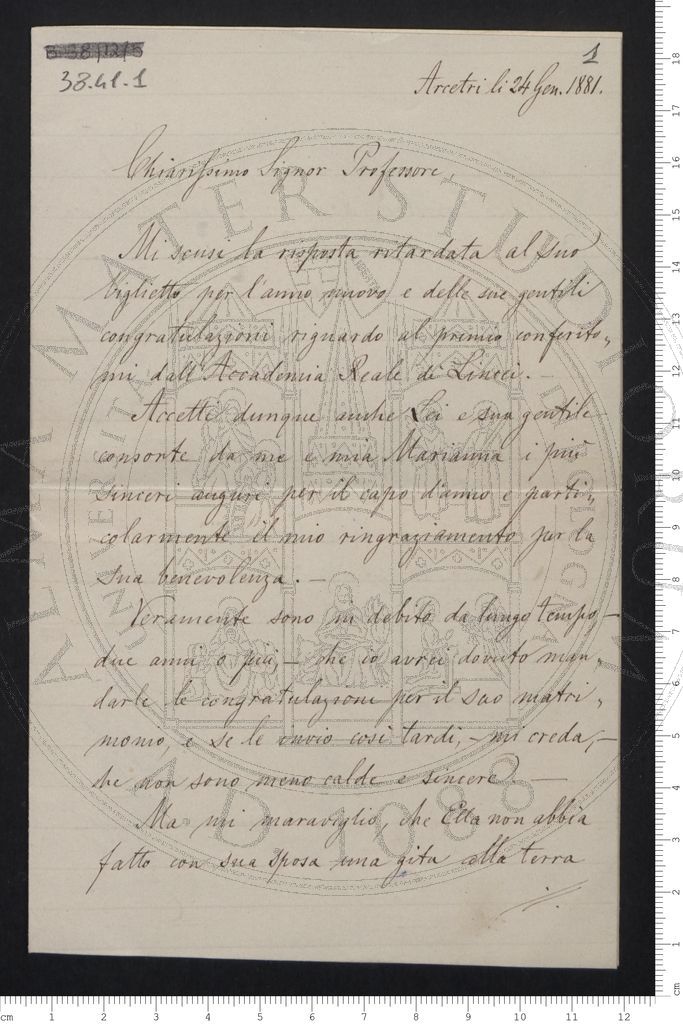 1
38.41.1
Arcetri li 24 Gen. 1881.
Chiarissimo Signor Professore,
Mi scusi la risposta ritardata al suo
biglietto per l'anno nuovo e delle sue gentili
congratulazioni riguardo al premio conferito„
mi dall'Accademia Reale di Lincei. —
Accetti dunque anche Lei e sua gentile
consorte da me e mia Marianna i più
sinceri auguri per il capo d'anno e parti„
colarmente il mio ringraziamento per la
sua benevolenza. —
Veramente sono in debito da lungo tempo —
due anni o più — che io avrei dovuto man„
darle le congratulazioni per il suo matri„
monio, e se le invio così tardi, — mi creda, —
che non sono meno calde e sincere. —
Ma mi maraviglio, che Ella non abbia
fatto con sua sposa una gita alla terra
ALMA MATER STUDIORUM
UNIVERSITÀ DI BOLOGNA
A.D. 1088
cm 1 2 3 4 5 6 7 8 9 10 11 12
18
17
16
15
14
13
12
11
10
9
8
7
6
5
4
3
2
1
cm